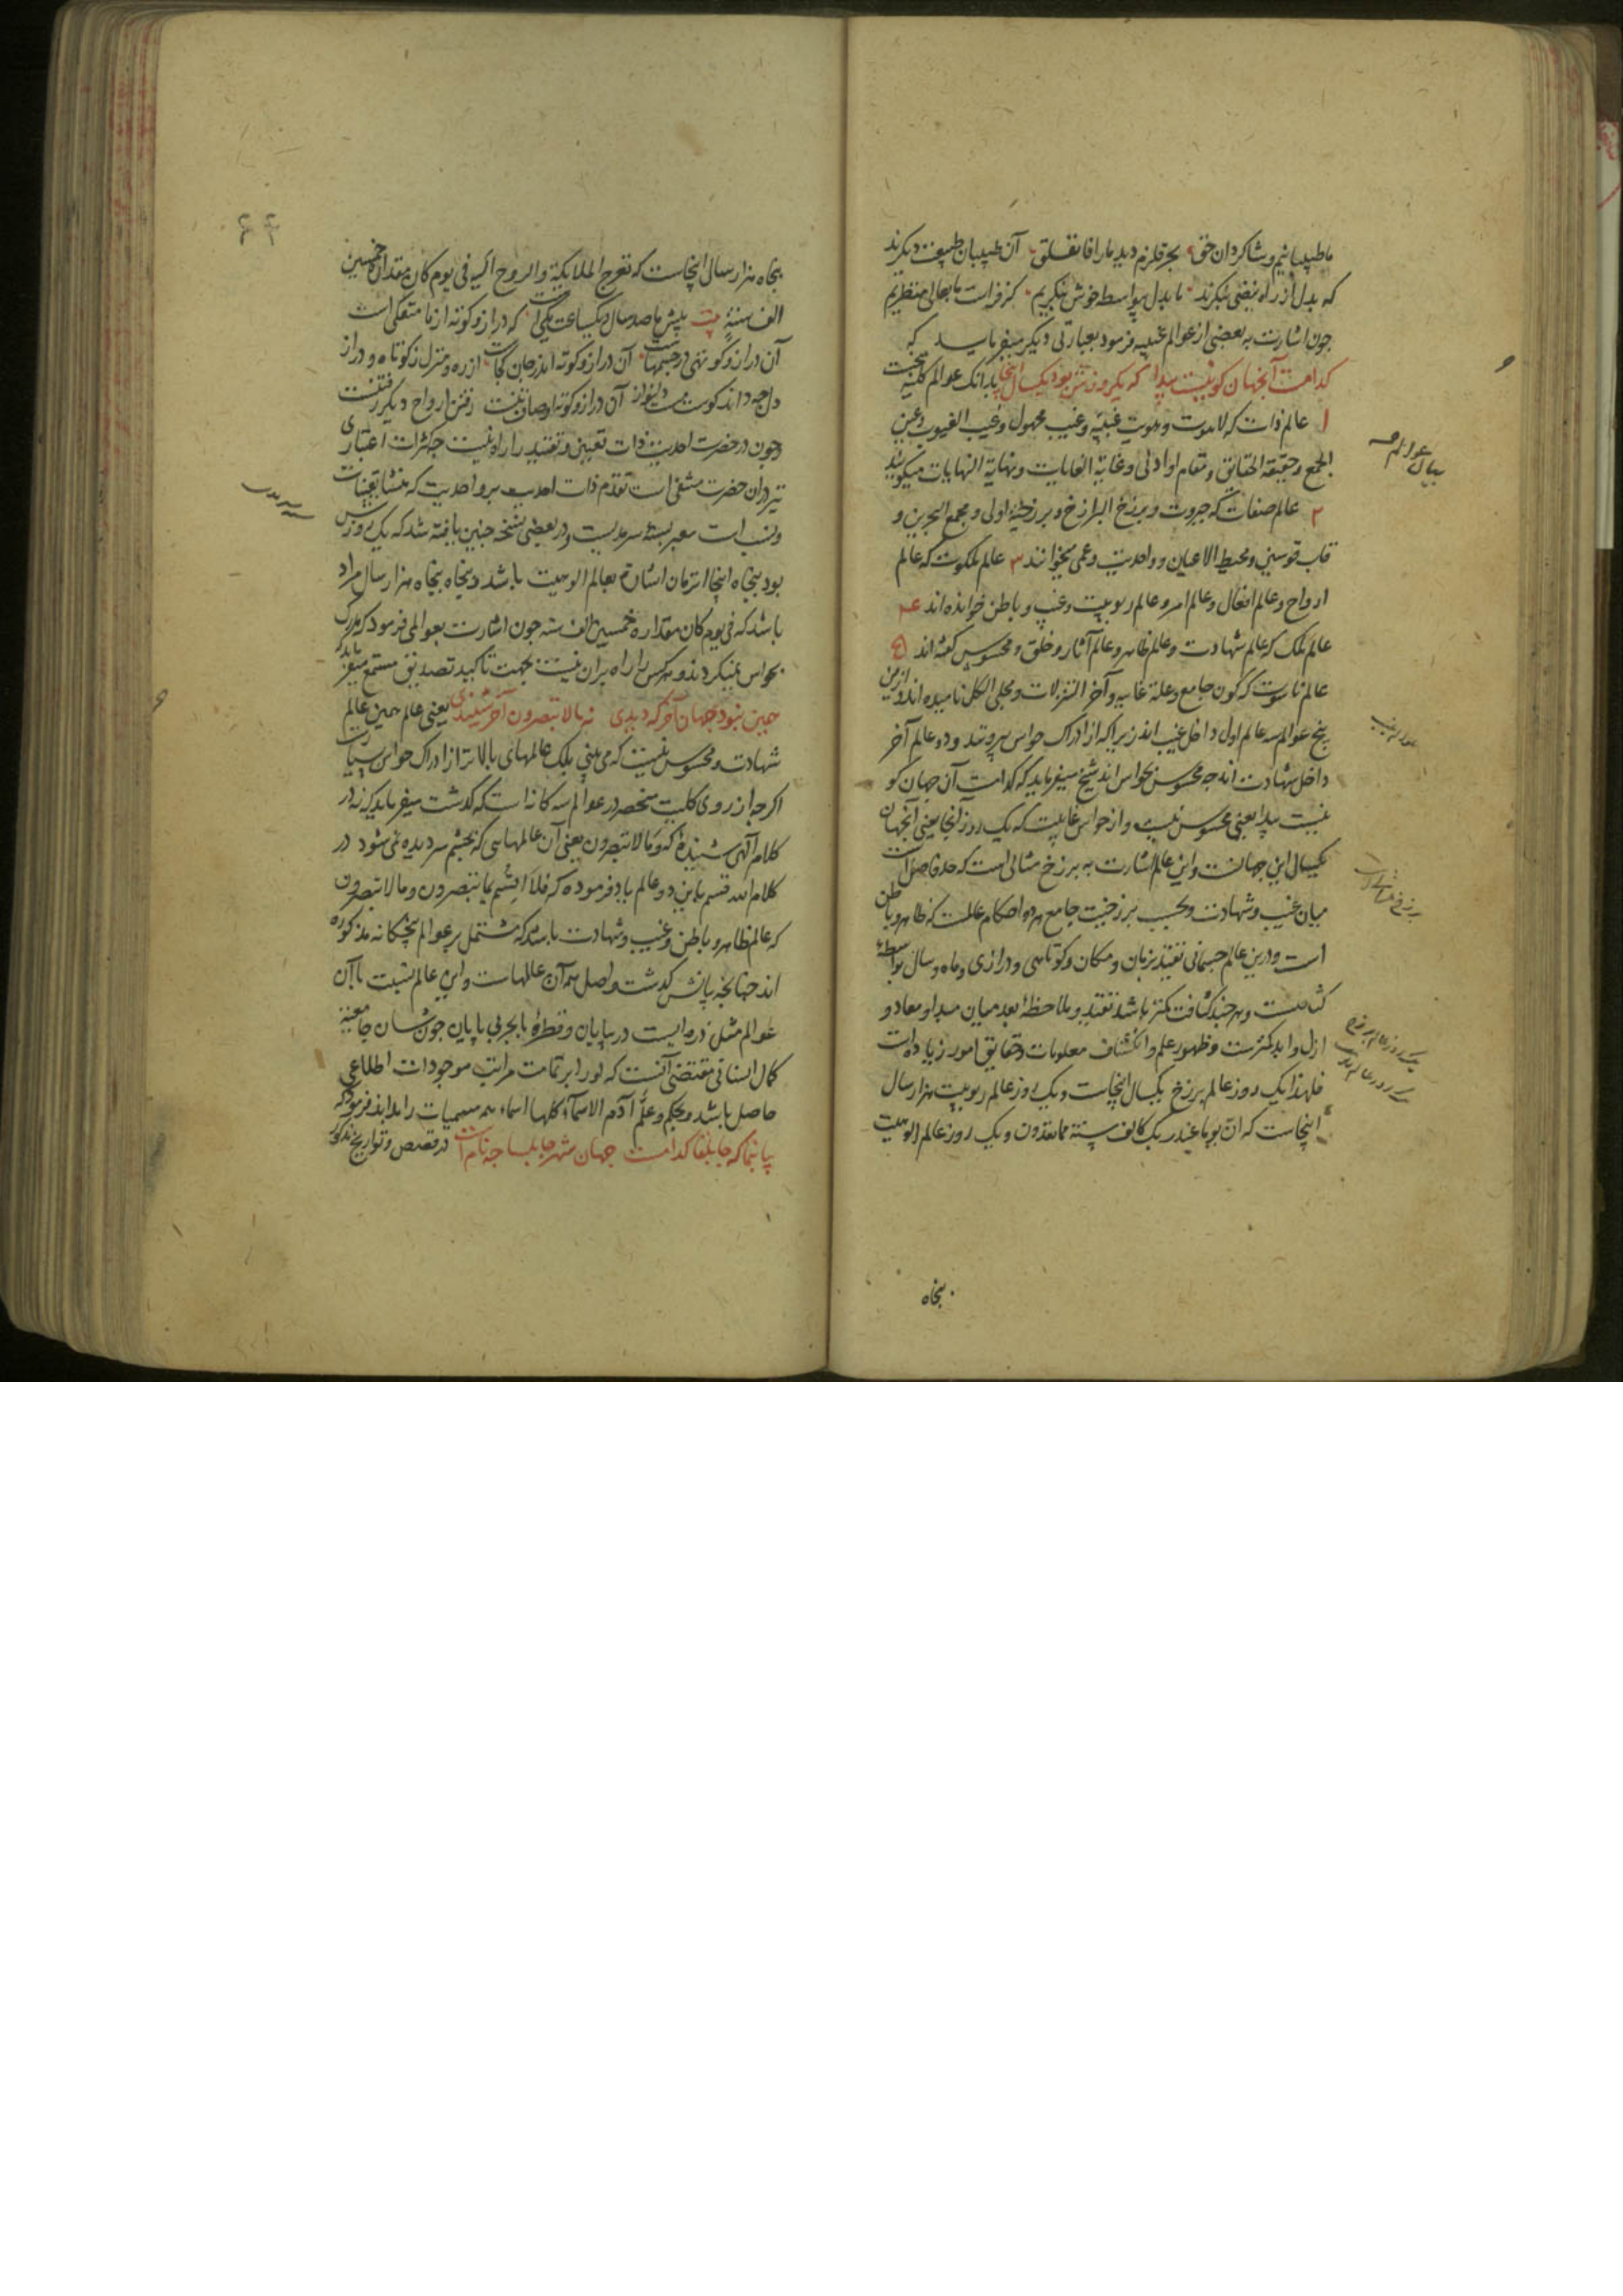 ما طبیبانیم و شاکردان حق بحر قلزم دید ما را فانفلق آن طبیبان طبیعت دیکرند
که بدل از راه نبضی بنکرند ما بدل بیواسطه خوش بنکریم کز فراست ما بعالی منظریم
جون اشارت به بعضی از عوالم غیبیه فرمود بعبارتی دیکر میفرماید که
کدامست آنجهان کو نیست پیدا که یکروزش بود یکسال اینجا بدانک عوالم کلیه پنجست
۱ عالم ذات که لاهوت و هویت غیبیه و غیب مجهول و غیب الغیوب و عین
الجمع و حقیقة الحقایق و مقام او ادنی و غایة الغایات و نهایة النهایات میکویند
۲ عالم صفات که جبروت و برزخ البرازخ و برزخیة اولی و مجمع البحرین و
قاب قوسین و محیط الاعیان و واحدیت و عمی میخوانند ۳ عالم ملکوت که عالم
ارواح و عالم افعال و عالم امر و عالم ربوبیت و غیب و باطن خوانده اند ۴
عالم ملک که عالم شهادت و عالم ظاهر و عالم آثار و خلق و محسوس کفته اند ۵
عالم ناسوت که کون جامع و علة غاییه و آخر التنزلات و مجلی الکل نامیده اند و ازین
پنج عوالم سه عالم اول داخل غیب اند زیرا که از ادراک حواس بیرونند و دو عالم آخر
داخل شهادت اند جه محسوس بحواس اند شیخ میفرماید که کدامست آن جهان کو
نیست پیدا یعنی محسوس نیست و از حواس غایبست که یک روز آنجا یعنی آنجهان
یکسال این جهانست و این عالم اشارت به برزخ مثالی است که حد فاصل است
میان غیب و شهادت و بحسب برزخیت جامع هر دو احکام عالمست که ظاهر و باطن
است و درین عالم جسمانی تقید بزمان و مکان و کوتاهی و درازی و ماه و سال بواسطه
کثافت است و هر جند کثافت کمتر باشد تقید و ملاحظه بعد میان مبدا و معاد و
ازل و ابد کمترست و ظهور علم و انکشاف معلومات و حقایق امور زیاده است
فلهذا یک روز عالم برزخ یکسال اینجاست و یک روز عالم ربوبیت هزار سال
اینجاست که ان یوما عند ربک کالف سنة مما تعدون و یک روز عالم الوهیت
پنجاه
بیان عوالم خمسه
عوالم غیب
یک روز عالم برزخ
یک روز عالم ربوبیت
پنجاه هزار سال اینجاست که تعرج الملایکة و الروح الیه فی یوم کان مقداره خمسین
الف سنة بیت پیش ما صد سال و یکساعت یکی است که دراز و کوته از ما منفکی است
آن دراز و کوتهی در جسمهاست آن دراز و کوته اندر جان کجاست از ره و منزل ز کوتاه و دراز
دل جه داند کوست مست دلنواز آن دراز و کوته اوصاف تنست رفتن ارواح دیکر رفتنست
و جون در حضرت احدیت ذات تعیین و تقید را راه نیست جه کثرات اعتباری
نیز در ان حضرت منتفی است تقدم ذات احدیت بر واحدیت که منشا تعینات
و نسب است معبر بسنه سرمدیست و در بعضی نسخه جنین یافته شد که یک روزش
بود پنجاه اینجا انزمان اشارة بعالم الوهیت باشد و پنجاه پنجاه هزار سال مراد
باشد که فی یوم کان مقداره خمسین الف سنة جون اشارت بعوالمی فرمود که مدرک
بحواس نمیکردند و هر کس را راه بران نیست بجهت تاکید تصدیق مستمع میفرماید که
همین نبود جهان آخر که دیدی نه ما لا تبصرون آخر شنیدی یعنی عالم همین عالم
شهادت و محسوس نیست که می بینی بلک عالمهای بالاتر از ادراک حواس بسیارست
اکرجه از روی کلیت منحصر در عوالم سه کانه است که کذشت میفرماید که نه در
کلام آلهی شنیدهٔ که و ما لا تبصرون یعنی آن عالمهایی که بجشم سر دیده نمی شود در
کلام الله قسم باین دو عالم یاد فرموده که فلا اقسم بما تبصرون و ما لا تبصرون
که عالم ظاهر و باطن و غیب و شهادت باشد که مشتمل بر عوالم پنجکانه مذکوره
اند جنانجه پاتش کذشت و اصل همه آن عالمهاست و این عالم نسبت با آن
عوالم مثل ذره ایست در بیابان و قطرهٔ با بحر بی پایان جون شان جامعیة
کمال انسانی مقتضی آنست که او را بر تمامت مراتب موجودات اطلاعی
حاصل باشد و بحکم و علم آدم الاسماء کلها اسماء همه مسمیات را بداند فرمود که
بیا بنما که جابلقا کدامست جهان شهر جابلسا جه نامست در قصص و تواریخ مذکور